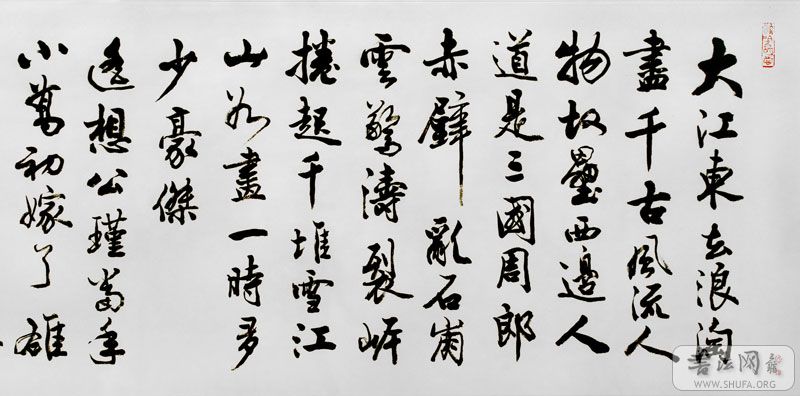 大江東去浪淘
盡千古風流人
物故壘西邊人
道是三國周郎
赤壁亂石崩
雲驚濤裂岸
捲起千堆雪江
山如畫一時多
少豪傑
遙想公瑾當年
小喬初嫁了雄
書法网
WWW.SHUFA.ORG